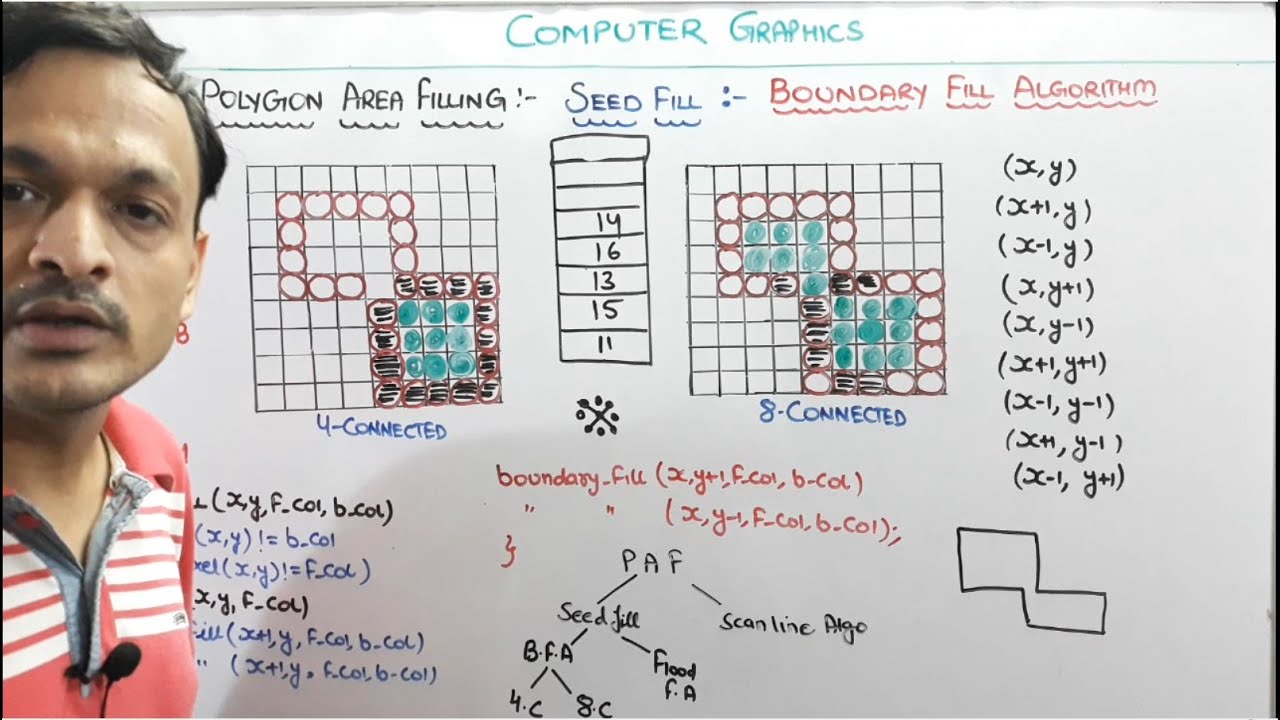 COMPUTER GRAPHICS
POLYGON AREA FILLING :- SEED FILL :- BOUNDARY FILL ALGORITHM
14
16
13
15
11
4-CONNECTED
8-CONNECTED
(x,y)
(x+1,y)
(x-1,y)
(x,y+1)
(x,y-1)
(x+1,y+1)
(x-1,y-1)
(x+1,y-1)
(x-1, y+1)
(x,y,F_Col,b_Col)
(x,y)!=b_col
xel(x,y)!=F_Col)
x,y,F_Col)
fill(x+1,y,F_Col,b_Col)
" (x+1,y,F_Col,b-Col)
boundary_Fill(x,y+1,F_Col,b-Col)
" " (x,y-1,F_Col,b_Col);
}
PAF
Seed fill
Scanline Algo
B.F.A
Flood F.A
4.C
8.C